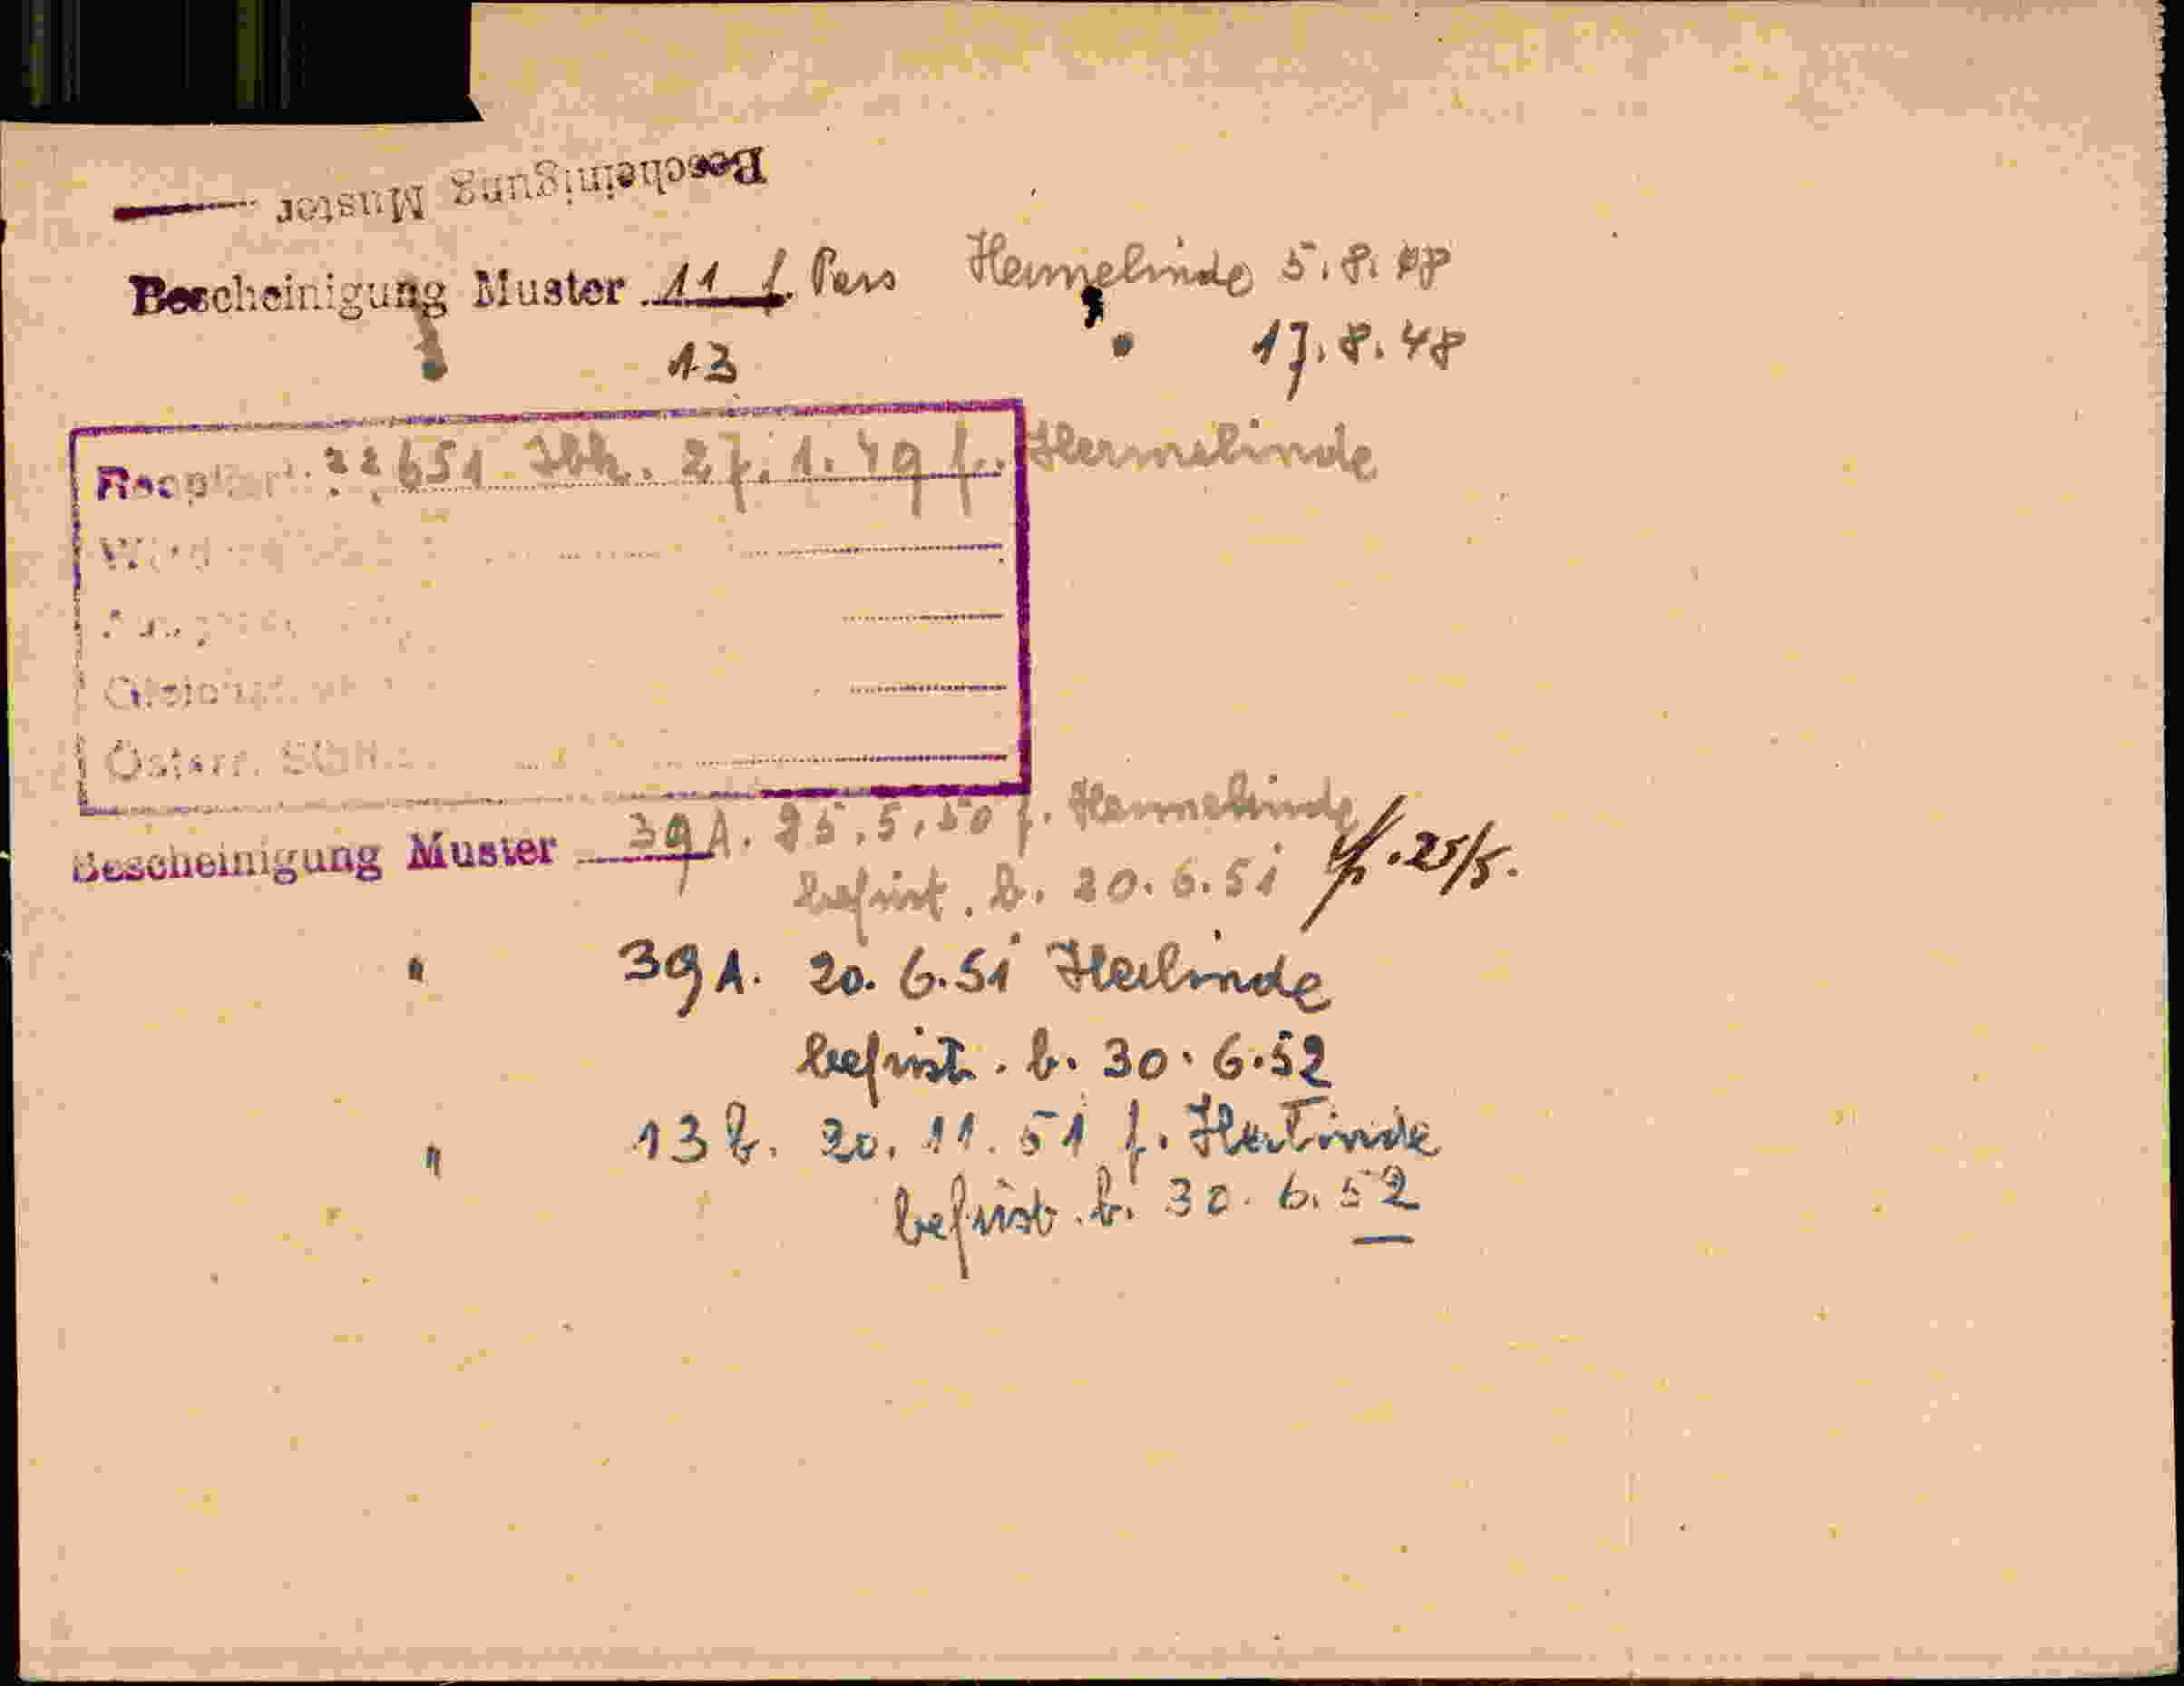 Bescheinigung Muster
Bescheinigung Muster 11 f. Pass Hermelinde 5.8.48
13 " 17.8.48
22651 Ibk. 27.1.49 f. Hermelinde
Österr.
Bescheinigung Muster 39A. 25.5.50 f. Hermelinde
befrist. b. 20.6.51 25/5.
" 39A. 20.6.51 Herlinde
befrist. b. 30.6.52
" 13b. 20.11.51 f. Herlinde
befrist. b. 30.6.52